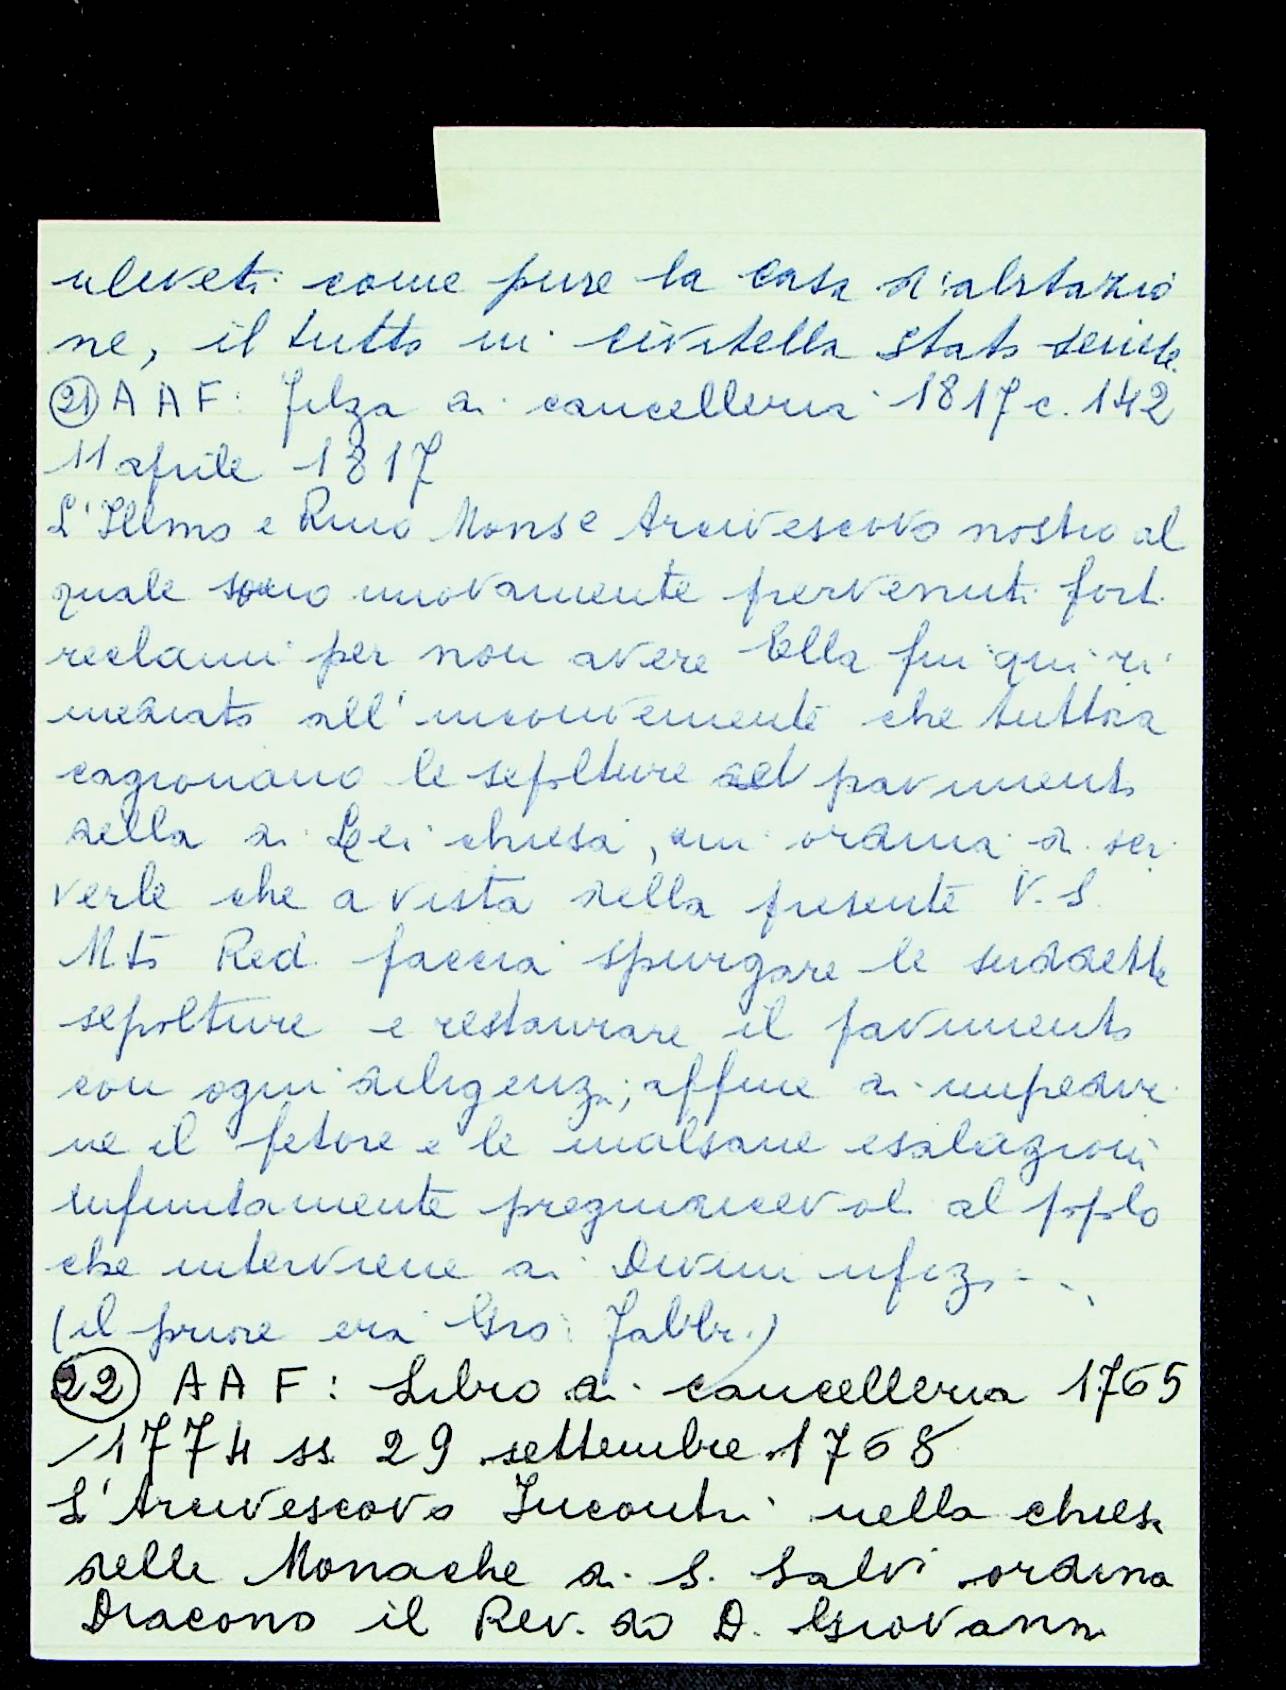 uliveti come pure la casa d'abitazio
ne, il tutto in Civitella stato senese.
(21) A A F: Filza di cancelleria 1817 c. 142
11 aprile 1817
L'Illmo e Rmo Mons e Arcivescovo nostro al
quale sono nuovamente pervenuti forti
reclami per non avere Ella fin qui ri
mediato all'inconveniente che tuttora
cagionano le sepolture del pavimento
della di Lei chiesa, mi ordina di scri
verle che a vista della presente V. S.
Mto Red. faccia spurgare le suddette
sepolture e restaurare il pavimento
con ogni diligenza; affine di impedir
ne il fetore e le malsane esalazioni
infinitamente pregiudicevoli al popolo
che interviene ai Divini ufizi...
(il priore era Gio: Fabbri)
(22) A A F: Libro di cancelleria 1765
/1774 ss 29 settembre 1768
L'Arcivescovo Incontri nella chiesa
delle Monache di S. Salvi ordina
Diacono il Rev. do D. Giovanni